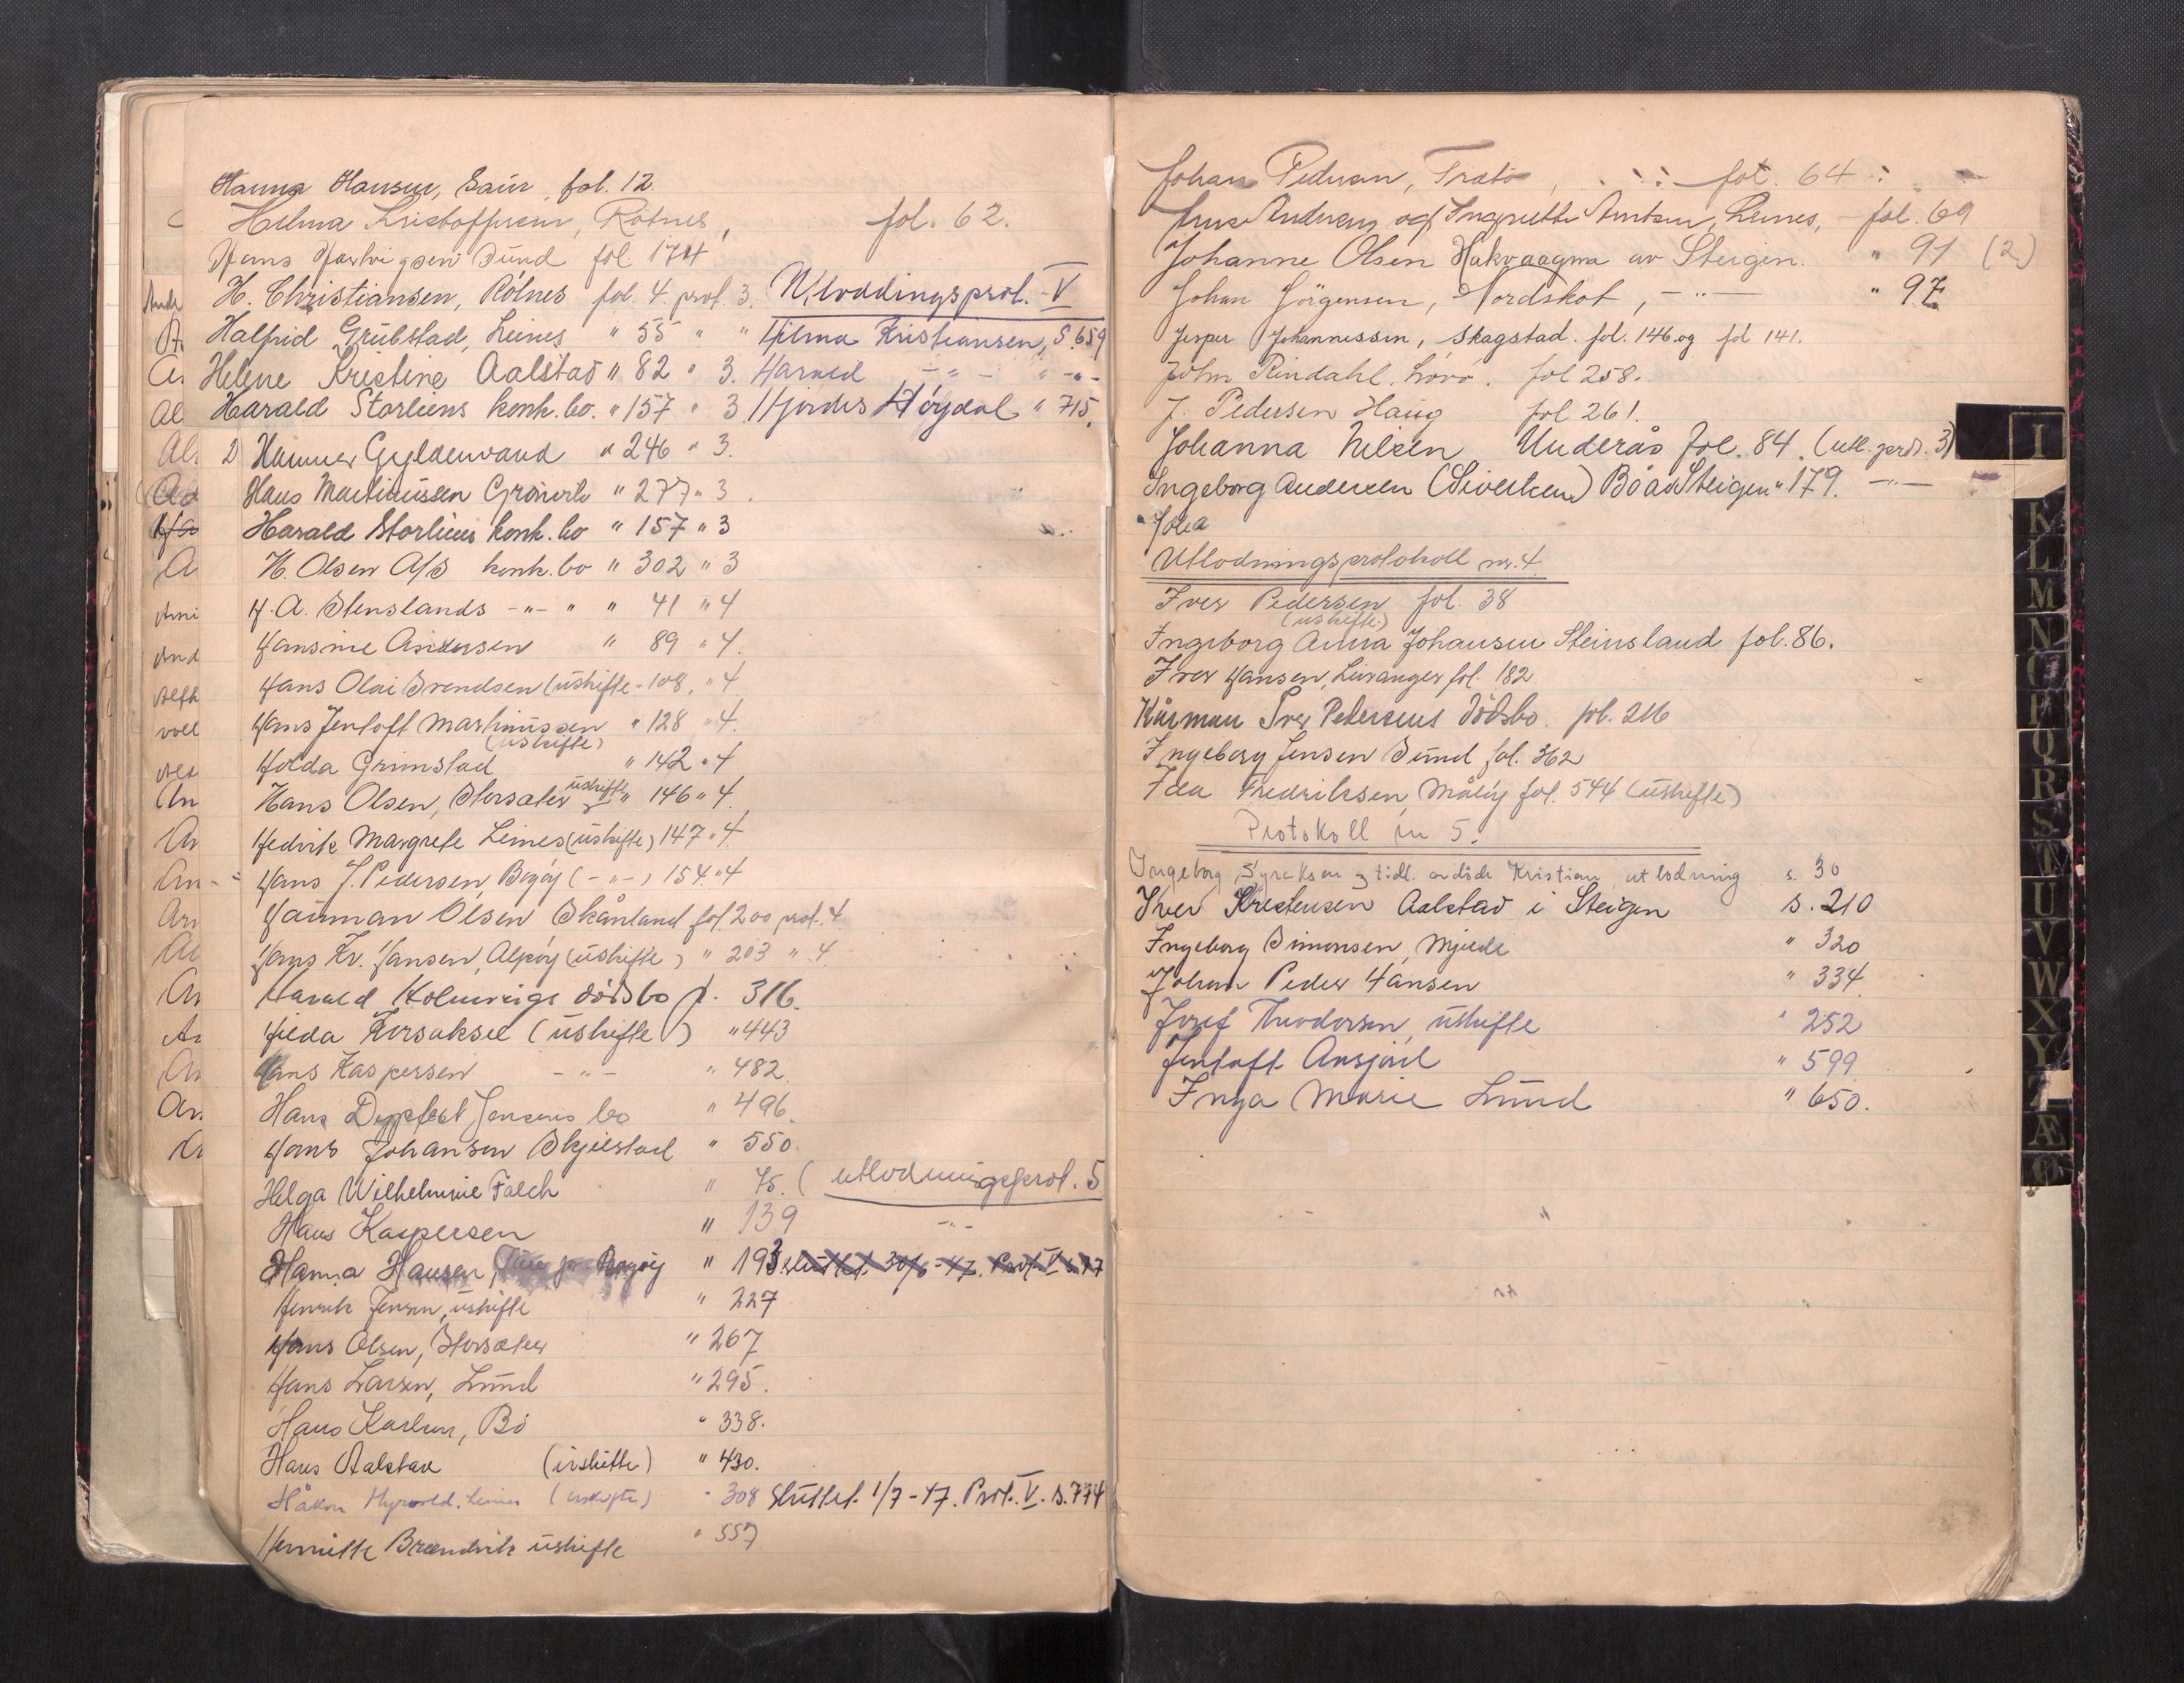 Hanna Hansen, fol. 12
Helma Kristoffersen, Rotnes, fol. 62.
Hans Hartvigsen Sund fol. 174
H. Christiansen, Rötnes fol. 4. prot. 3. Utloddingsprot. V
Halfrid Grubstad, Leines " 55 " " Hilma Kristiansen, S. 659
Helene Kristine Aalstad " 82 " 3. Harald -"- " -"-
Harald Storliens konk.bo. " 157 " 3 Hjördis Höydal " 715.
Gyldenvand " 246 " 3.
Hans Martinussen " 277 " 3.
Harald Storliens konk. bo " 157 " 3
H. Olsen A/S konk. bo " 302 " 3
H. A. Stenslands -"- " " 41 " 4
Hansine Andersen " 89 " 4.
Hans Olai Svendsen (uskifte - 108, " 4
Hans Jentoft Martinussen " 128 " 4.
(uskifte)
Holda Grimstad " 142 " 4
Hans Olsen, Storsæter uskifte " 146 " 4.
Hedvik Margrete Leines (uskifte) 147 " 4.
Hans J. Pedersen, Bogöy (-"-) 154. " 4
Haarman Olsen Skånland fol. 200 prot. 4
Hans Kr. Hansen, Alpöy (uskifte) " 203 " 4
Harald Kolmvigs dödsbo f. 316.
Hilda Korsaksel (uskifte) " 443
Hans Kaspersen -"- " 482.
Hans Jensens bo " 496.
Hans Johansen Skjelstad " 550.
Helga Wilhelmine Falch " 75. (utlodningsprot. 5
Hans Kaspersen " 139 -"-
Hanna Hansen, Bogöy " 193 sluttet 30/6-47. Prot. V s. 77
Henrik Jensen, uskifte " 227
Hans Olsen, Storsæter " 267
Hans Larsen, Lund " 295.
Hans Karlsen, Bö " 338.
Hans Aalstad (uskifte) " 430.
Håkon Myrvold, Leines (uskifte) " 308 Sluttet 1/7-47. Prot. V. s. 774
Henriette Brændvik uskifte " 557
Johan Pedersen, fol. 64
Andersen og Ingrette Arntsen, Leines, fol. 69
Johanne Olsen Hakvaagma av Steigen. " 91 (2)
Johan Jörgensen, Nordskot, -"- " 97.
Jesper Johannessen, Skagstad. fol. 146 og fol 141.
John Rindahl. Lövö. fol 258.
J. Pedersen Haug fol 261.
Johanna Nilsen Underås fol. 84. (utl. prot. 3)
Ingeborg Andersen (Sivertsen) Bö av Steigen " 179. -"-
Utlodningsprotokoll nr. 4
Iver Pedersen fol. 38
(uskifte)
Ingeborg Anna Johansen Steinsland fol. 86.
Iver Hansen, Leiranger fol. 182
Kårman Iver Pedersens dödsbo. fol. 216
Ingeborg Jensen Sund fol. 362
Ida Fredriksen, Måløy fol. 544 (uskifte)
Protokoll nr 5.
Ingeborg Syraksen g tidl. avdöde Kristian, utlodning s. 30
Iver Kristensen Aalstad i Steigen s. 210
Ingeborg Simonsen, Mjelde " 320
Johan Peder Hansen " 334.
Josef Theodorsen, uskifte " 252
Jentoft Ansjöil " 599
Inga Marie Lund " 650.
I
K
L
M
N
O
P
Q
R
S
T
U
V
W
X
Y
Z
Æ
Ø